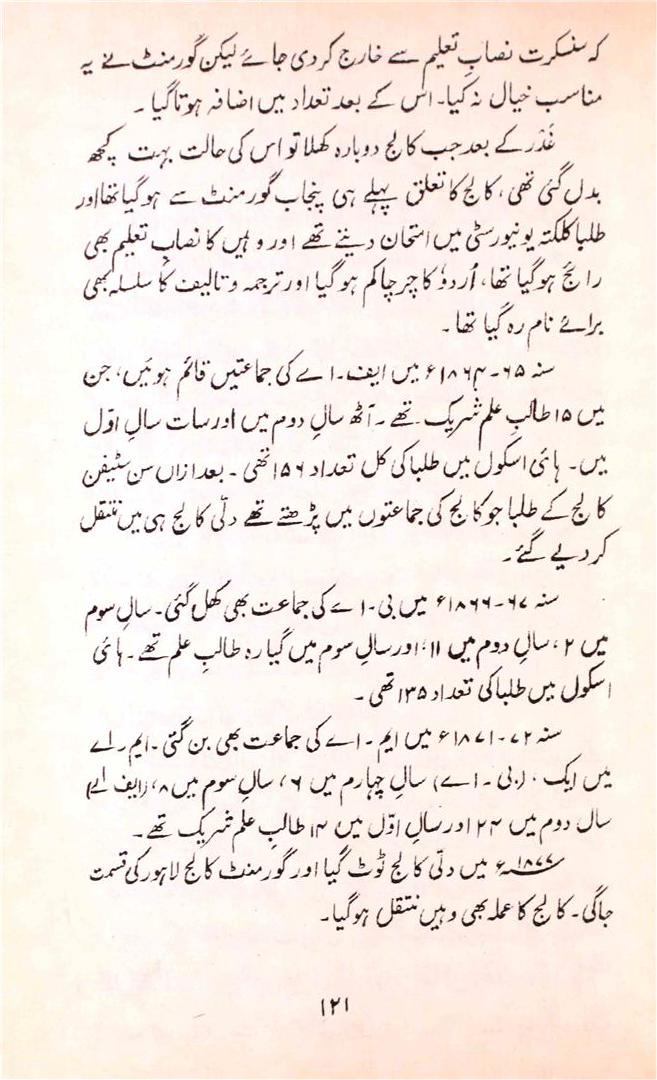 کہ سنسکرت نصابِ تعلیم سے خارج کر دی جائے لیکن گورمنٹ نے یہ
مناسب خیال نہ کیا۔ اس کے بعد تعداد میں اضافہ ہوتا گیا۔
غَدْر کے بعد جب کالج دوبارہ کھلا تو اس کی حالت بہت کچھ
بدل گئی تھی، کالج کا تعلق پہلے ہی پنجاب گورمنٹ سے ہو گیا تھا اور
طلبا کلکتہ یونیورسٹی میں امتحان دیتے تھے اور وہیں کا نصابِ تعلیم بھی
رائج ہو گیا تھا، اُردوٗ کا چرچا کم ہو گیا اور ترجمہ و تالیف کا سلسلہ بھی
برائے نام رہ گیا تھا۔
سنہ ۶۵-۱۸۶۴ء میں ایف۔اے کی جماعتیں قائم ہوئیں، جن
میں ۱۵ طالبِ علم شریک تھے۔ آٹھ سالِ دوم میں اور سات سالِ اوّل
میں۔ ہائی اسکول میں طلبا کی کل تعداد ۱۵۶ تھی۔ بعد ازاں سن سٹیفن
کالج کے طلبا جو کالج کی جماعتوں میں پڑھتے تھے دلّی کالج ہی میں منتقل
کر دیے گئے۔
سنہ ۶۷-۱۸۶۶ء میں بی۔اے کی جماعت بھی کھل گئی۔ سالِ سوم
میں ۲، سالِ دوم میں ۱۱، اور سالِ سوم میں گیارہ طالبِ علم تھے۔ ہائی
اسکول میں طلبا کی تعداد ۱۳۵ تھی۔
سنہ ۷۲-۱۸۷۱ء میں ایم۔اے کی جماعت بھی بن گئی۔ ایم۔اے
میں ایک، (بی۔اے) سالِ چہارم میں ۶، سالِ سوم میں ۸، (ایف اے)
سال دوم میں ۲۴ اور سالِ اوّل میں ۱۴ طالبِ علم شریک تھے۔
سنہ ۱۸۷۷ء میں دلّی کالج ٹوٹ گیا اور گورمنٹ کالج لاہور کی قسمت
جاگی۔ کالج کا عملہ بھی وہیں منتقل ہو گیا۔
۱۲۱